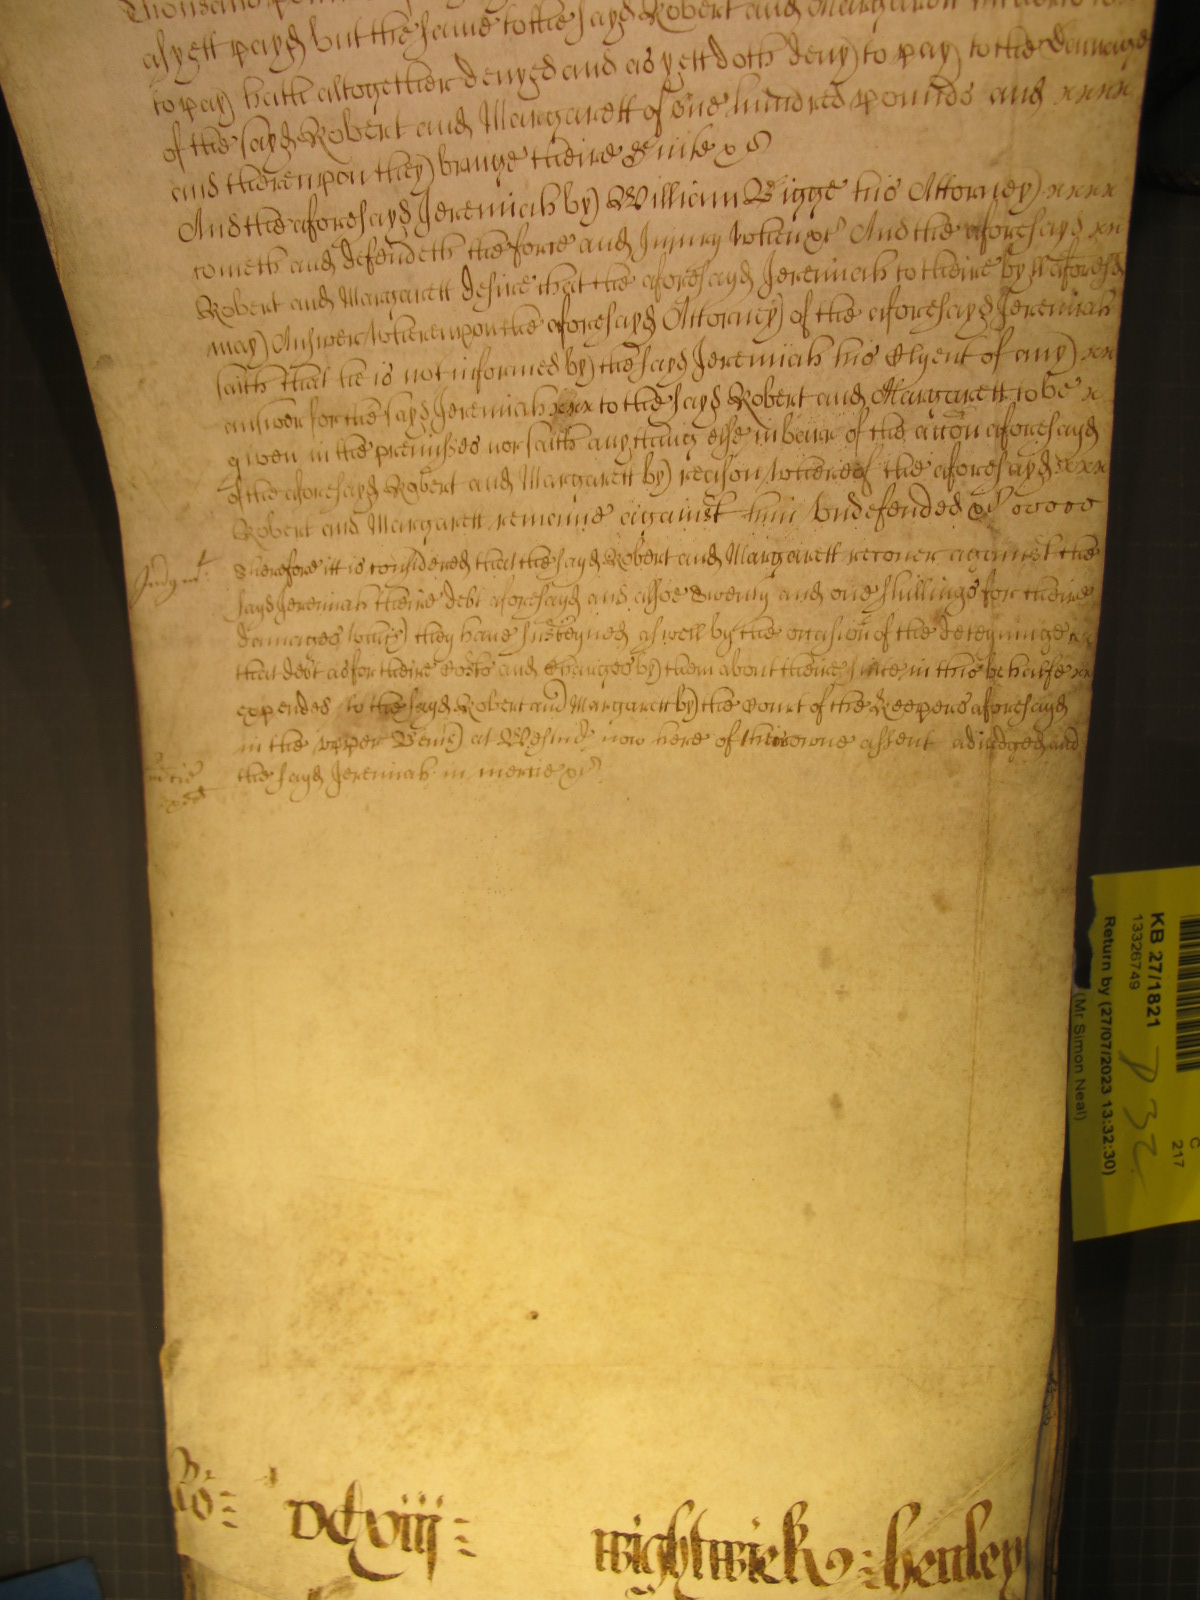 Thousand
as yett payd but the same to the sayd Robert and Margarett
to pay hath altogether denyed and as yett doth deny to pay to the Damage
of the sayd Robert and Margarett of one hundred pounds and xxxx
and thereupon they bringe theire Suite &c
And the aforesayd Jeremiah by William Bigge his Attorney xxxx
cometh and defendeth the force and Injury when &c And the aforesayd xxx
Robert and Margarett desire that the aforesayd Jeremiah to theire by aforesd
may Answer Whereupon the aforesayd Attorney of the aforesayd Jeremiah
saith that he is not informed by the sayd Jeremiah his Clyent of any xx
answer for the sayd Jeremiah xxx to the sayd Robert and Margarett to be x
given in the premisses nor saith any thing else in barr of the accon aforesayd
of the aforesayd Robert and Margarett by reason whereof the aforesayd xxx
Robert and Margarett remaine against him Undefended &c ooooo
Judgmt:
Therefore itt is considered that the sayd Robert and Margarett recover against the
sayd Jeremiah theire debt aforesayd and alsoe Twenty and one shillings for theire
damages which they have susteyned as well by the occasion of the deteyninge
that debt as for theire Costs and Charges by them about theire suite in this behalfe xx
expended to the sayd Robert and Margarett by the Court of the Keepers aforesayd
in the upper Bench at Westmr now here of theire owne assent adiudged and
mercie
the sayd Jeremiah in mercie &c
Ro: DCxviij: wightwick : henley
KB 27/1821
13326749
Return by (27/07/2023 13:32:30)
(Mr Simon Neal)
C
217